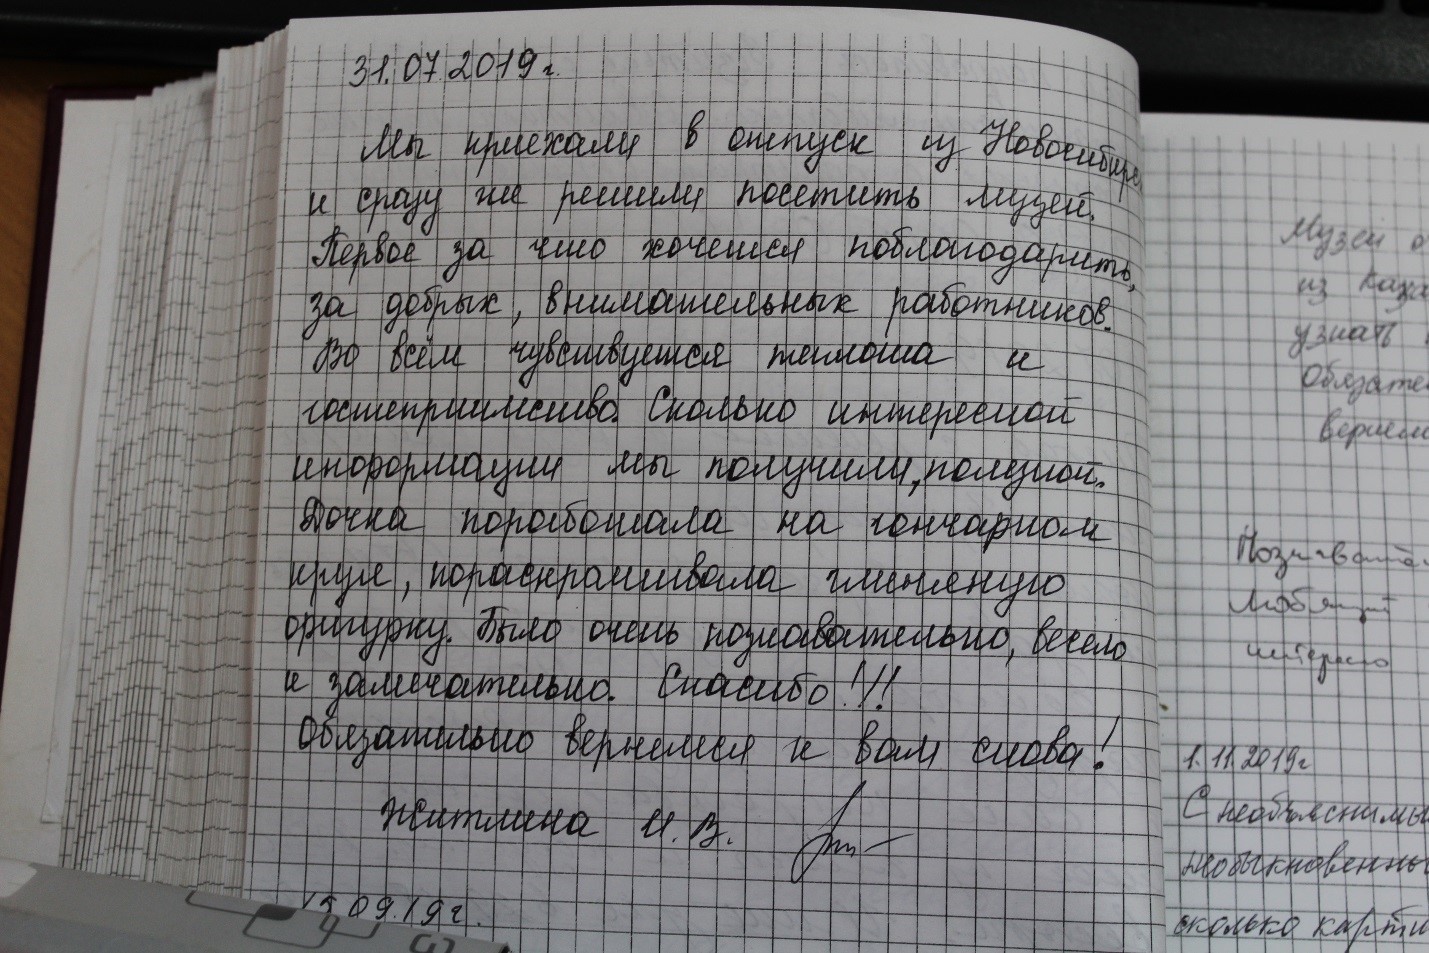 31.07.2019г.
Мы приехали в отпуск из Новосибирс
и сразу же решили посетить музей.
Первое за что хочется поблагодарить,
за добрых, внимательных работников.
Во всём чувствуется теплота и
гостеприимство. Сколько интересной
информации мы получили, полезной.
Дочка поработала на гончарном
круге, пораскрашивала глиняную
фигурку. Было очень познавательно, весело
и замечательно. Спасибо!!!
Обязательно вернемся к вам снова!
Житлина И.В.
09.19г.
Музей
из Каза
узнать
Обязате
вернем
Познавате
интересно
1.11.2019г
С необъяснимы
необыкновенны
сколько карти